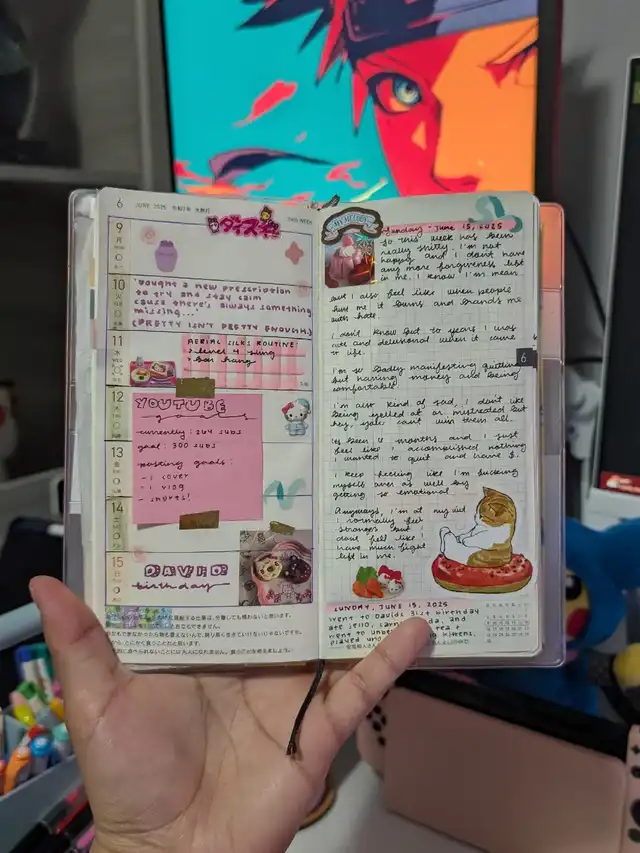 6 JUNE 2025 令和7年
24th WEEK
ダイスキ
9
月
10
火
"bought a new prescription
to try and stay calm
cause there's always something
missing..."
(PRETTY ISN'T PRETTY ENOUGH)
11
水
AERIAL SILKS ROUTINE:
> level 4 sling
> bar hang
12
木
YOUTUBE
goals
currently: 264 subs
goal: 300 subs
posting goals:
- 1 cover
- 1 vlog
- shorts!
13
金
14
土
15
日
DAVID
birthday
MY MELODY
Sunday - June 15, 2025
So this week has been
really shitty. I'm not
happy and I don't have
any more forgiveness left
in me. I know I'm mean
but I also feel like when people
hurt me it burns and brands me
with hate.
I don't know but 10 years I was
cute and delusional when it came
to life.
6
I'm so badly manifesting quitting
but having money and being
comfortable.
I'm also kind of sad, I don't like
being yelled at or mistreated but
hey, ya'll can't win them all.
It's been 6 months and I just
feel like I accomplished nothing.
I wanted to quit and have $.
I keep feeling like I'm fucking
myself over as well by
getting so emotional.
Anyways, I'm at my
I normally feel
stronger but I
don't feel like I
have much fight
left in me.
SUNDAY, JUNE 15, 2025
went to David's 31st birthday
and
ate
went to
tea +
played
kittens.